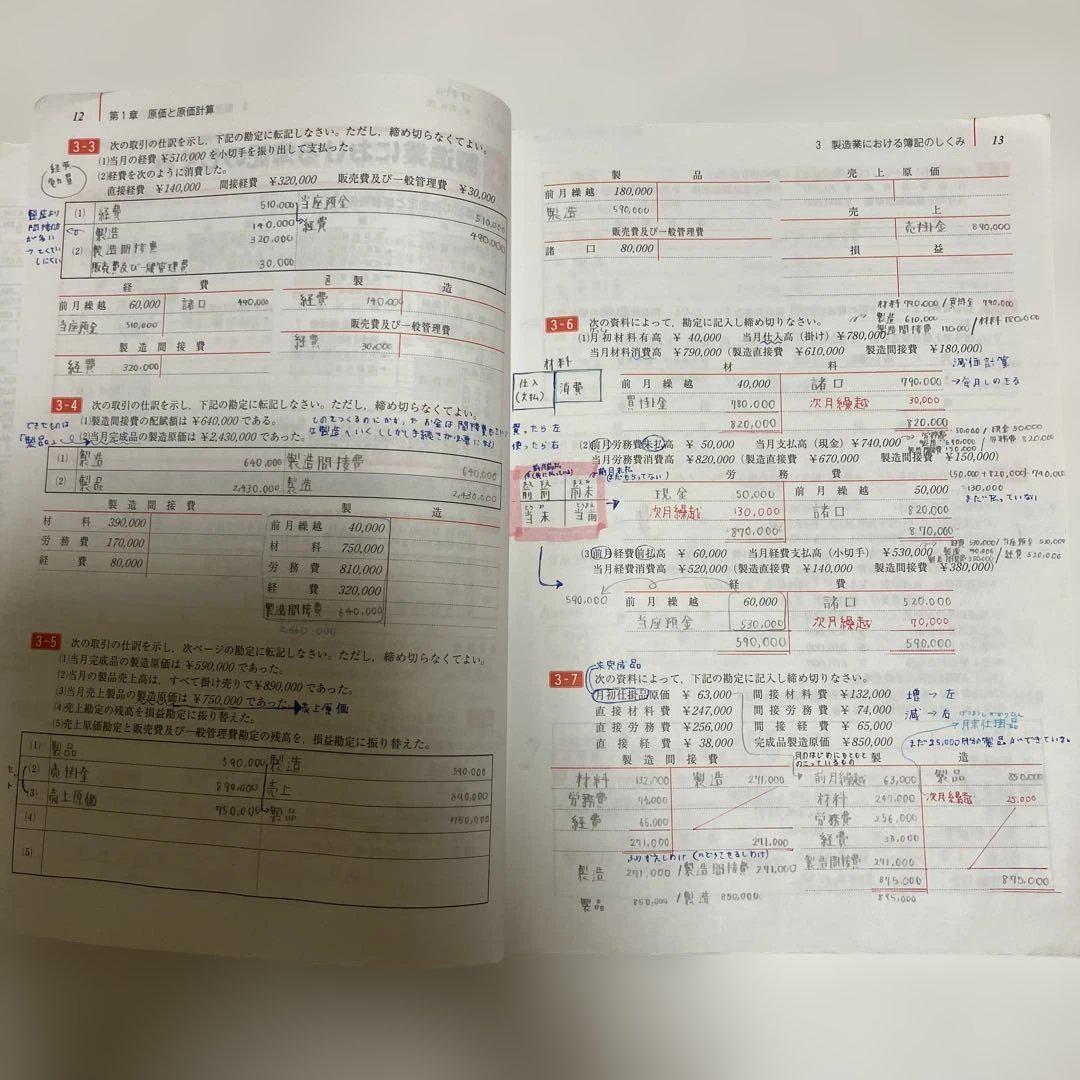 12 第1章 原価と原価計算
3-3 次の取引の仕訳を示し，下記の勘定に転記しなさい。ただし，締め切らなくてよい。
(1)当月の経費 ¥510,000 を小切手を振り出して支払った。
(2)経費を次のように消費した。
直接経費 ¥140,000 間接経費 ¥320,000 販売費及び一般管理費 ¥30,000
(1) 経費 510,000 当座預金 510,000
(2) 製造 140,000 経費 490,000
製造間接費 320,000
販売費及び一般管理費 30,000
経 費
前月繰越 60,000 諸口 490,000
当座預金 510,000
製 造
経費 140,000
販売費及び一般管理費
経費 30,000
製造間接費
経費 320,000
3-4 次の取引の仕訳を示し，下記の勘定に転記しなさい。ただし，締め切らなくてよい。
(1)製造間接費の配賦額は ¥640,000 である。
(2)当月完成品の製造原価は ¥2,430,000 であった。
(1) 製造 640,000 製造間接費 640,000
(2) 製品 2,430,000 製造 2,430,000
製造間接費
材料 390,000
労務費 170,000
経費 80,000
製 造
前月繰越 40,000
材料 750,000
労務費 810,000
経費 320,000
製造間接費 640,000
3-5 次の取引の仕訳を示し，次ページの勘定に転記しなさい。ただし，締め切らなくてよい。
(1)当月完成品の製造原価は ¥590,000 であった。
(2)当月の製品売上高は，すべて掛け売りで ¥890,000 であった。
(3)当月売上製品の製造原価は ¥750,000 であった。 売上原価
(4)売上勘定の残高を損益勘定に振り替えた。
(5)売上原価勘定と販売費及び一般管理費勘定の残高を，損益勘定に振り替えた。
(1) 製品 590,000 製造 590,000
(2) 売掛金 890,000 売上 890,000
(3) 売上原価 750,000 製品 750,000
(4)
(5)
3 製造業における簿記のしくみ 13
製 品
前月繰越 180,000
製造 590,000
売上原価
売 上
売掛金 890,000
販売費及び一般管理費
諸口 80,000
損 益
材料 790,000 / 買掛金 790,000
3-6 次の資料によって，勘定に記入し締め切りなさい。
(1)月初材料有高 ¥ 40,000 当月仕入高（掛け）¥780,000
当月材料消費高 ¥790,000（製造直接費 ¥610,000 製造間接費 ¥180,000）
材料
仕入 (支払) 消費
材 料
前月繰越 40,000 諸口 790,000
買掛金 780,000 次月繰越 30,000
820,000 820,000
買ったら左
使ったら右
→毎月しめきる
(2)前月労務費未払高 ¥ 50,000 当月支払高（現金）¥740,000
当月労務費消費高 ¥820,000（製造直接費 ¥670,000 製造間接費 ¥150,000）
労 務 費
現金 50,000 前月繰越 50,000
次月繰越 130,000 諸口 820,000
870,000 870,000
(50,000+820,000) 740,000
=130,000
まだ払っていない
(3)前月経費前払高 ¥ 60,000 当月経費支払高（小切手）¥530,000
当月経費消費高 ¥520,000（製造直接費 ¥140,000 製造間接費 ¥380,000）
経 費
590,000
前月繰越 60,000 諸口 520,000
当座預金 530,000 次月繰越 70,000
590,000 590,000
未完成品
3-7 次の資料によって，下記の勘定に記入し締め切りなさい。
月初仕掛品原価 ¥ 63,000 間接材料費 ¥132,000
直接材料費 ¥247,000 間接労務費 ¥ 74,000
直接労務費 ¥256,000 間接経費 ¥ 65,000
直接経費 ¥ 38,000 完成品製造原価 ¥850,000
増→左
減→右
月末仕掛品
まだ25,000円分の製品ができている。
製造間接費
材料 132,000 製造 271,000
労務費 74,000
経費 65,000
271,000 271,000
製 造
前月繰越 63,000 製品 850,000
材料 247,000 次月繰越 25,000
労務費 256,000
経費 38,000
製造間接費 271,000
875,000 875,000
製造 271,000 / 製造間接費 271,000
製品 850,000 / 製造 850,000